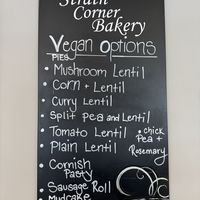 Strath
Corner
Bakery
Vegan Options
PIES
• Mushroom Lentil
• Corn + Lentil
• Curry Lentil
• Split Pea and Lentil
• Tomato Lentil
• Chick Pea + Rosemary
• Plain Lentil
• Cornish Pasty
• Sausage Roll
• Mudcake